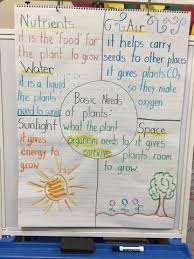 Nutrients
it is the food for
the plant to grow
Air
it helps carry
seeds to other places
it gives plants CO₂
so they make
oxygen
Water
it is a liquid
the plants
need to survive
Basic Needs
of plants:
what the plant
organism needs to
survive
Sunlight
it gives
energy to
grow
Space
it gives
plants room
to grow.